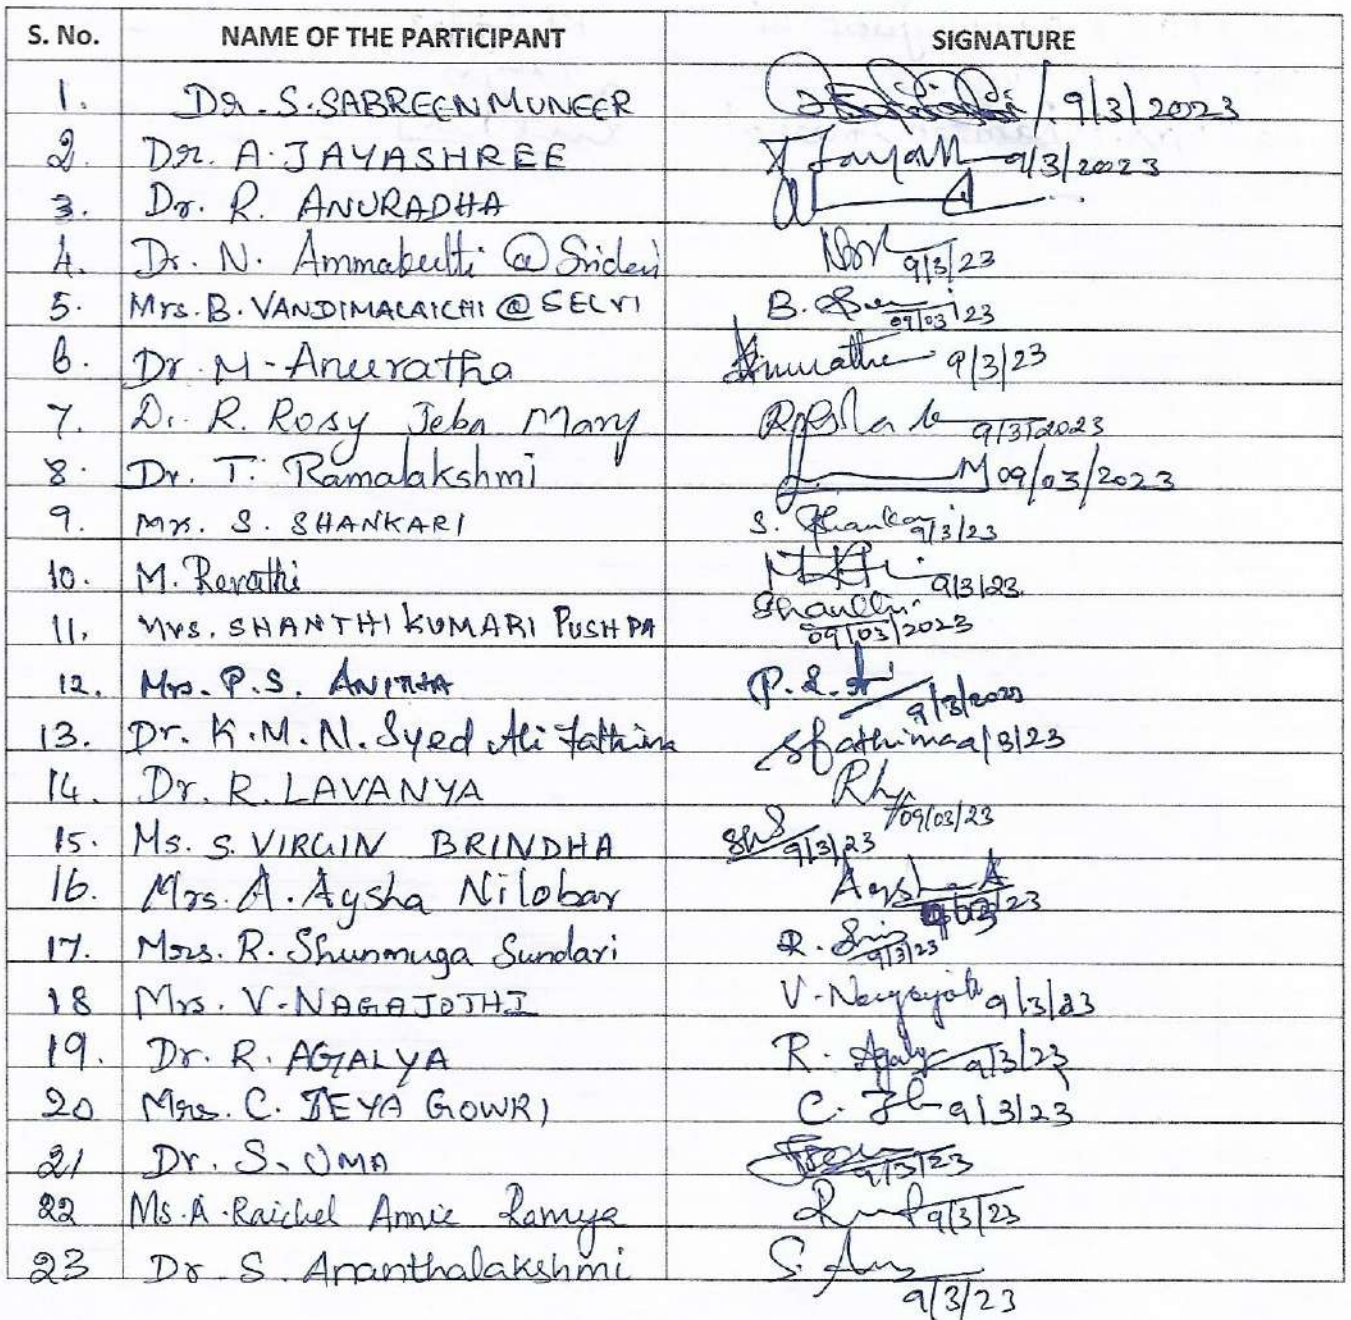 S. No. NAME OF THE PARTICIPANT SIGNATURE
1. Dr. S. SABREEN MUNEER /. 9/3/2023
2. Dr. A. JAYASHREE 9/3/2023
3. Dr. R. ANURADHA
4. Dr. N. Ammakutti @ Sridevi 9/3/23
5. Mrs. B. VANDIMALAICHI @ SELVI B. 09/03/23
6. Dr. M. Anuratha Anuratha 9/3/23
7. Dr. R. Rosy Jeba Mary 9/3/2023
8. Dr. T. Ramalakshmi 09/03/2023
9. Mrs. S. SHANKARI S. Shankari 9/3/23
10. M. Revathi 9/3/23
11. Mrs. SHANTHI KUMARI PUSHPA 09/03/2023
12. Mrs. P.S. ANITHA P.S. 9/3/2023
13. Dr. K.M.N. Syed Ali Fathima Sfathima 9/3/23
14. Dr. R. LAVANYA 09/03/23
15. Ms. S. VIRGIN BRINDHA 9/3/23
16. Mrs. A. Aysha Nilobar Aysha A 23
17. Mrs. R. Shunmuga Sundari R. 9/3/23
18 Mrs. V. NAGAJOTHI V. Nagajothi 9/3/23
19. Dr. R. AGALYA R. Agaly 9/3/23
20 Mrs. C. JEYA GOWRI C. 9/3/23
21 Dr. S. UMA 9/3/23
22 Ms. A. Raichel Annie Ramya 9/3/23
23 Dr. S. Ananthalakshmi S. 9/3/23